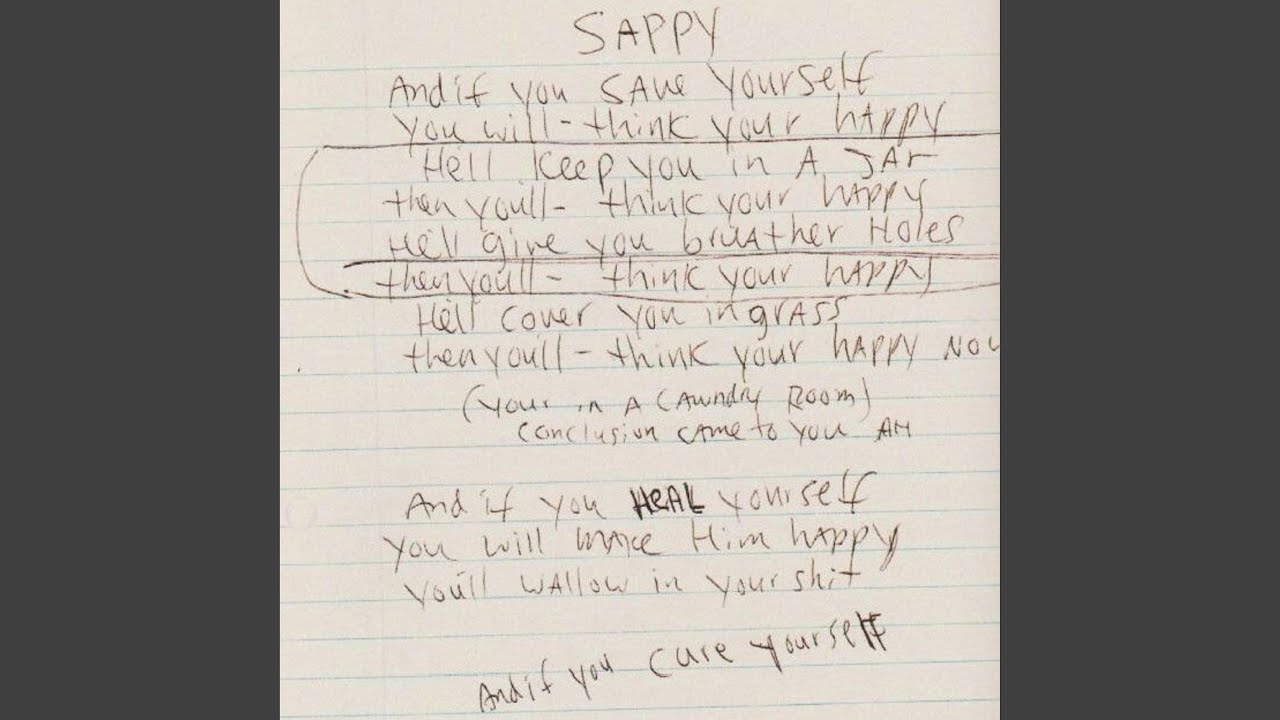 SAPPY
And if you SAVE Yourself
You will - think your hAppy
He'll keep you in A JAr
then you'll - think your hAppy
He'll give you breAther Holes
then you'll - think your hAppy
He'll cover you in grASS
then you'll - think your hAppy NOW
(Your in A LAundry Room)
Conclusion CAme to you AH
And if you HeAL yourself
You will mAKe Him hAppy
You'll wAllow in your shit
And if you Cure yourself